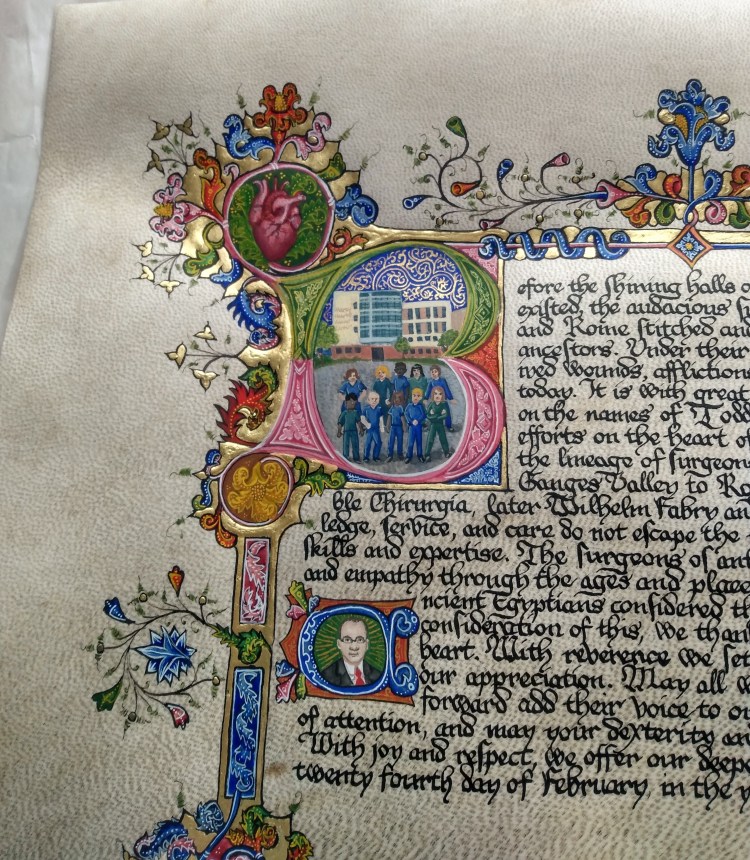 Before the shining halls
existed, the audacious
and Rome stitched and
ancestors. Under their
ived wounds, affliction
today. It is with great
on the names of Todd
efforts on the heart
the lineage of surgeon
Ganges Valley to Ro
ble Chirurgia, later Wilhelm Fabry an
ledge, service, and care do not escape the
skills and expertise. The surgeons of ant
and empathy through the ages and place
Ancient Egyptians considered th
consideration of this, we than
heart. With reverence we set
our appreciation. May all w
forward add their voice to o
of attention, and may your dexterity an
With joy and respect, we offer our deepe
twenty fourth day of February in the y